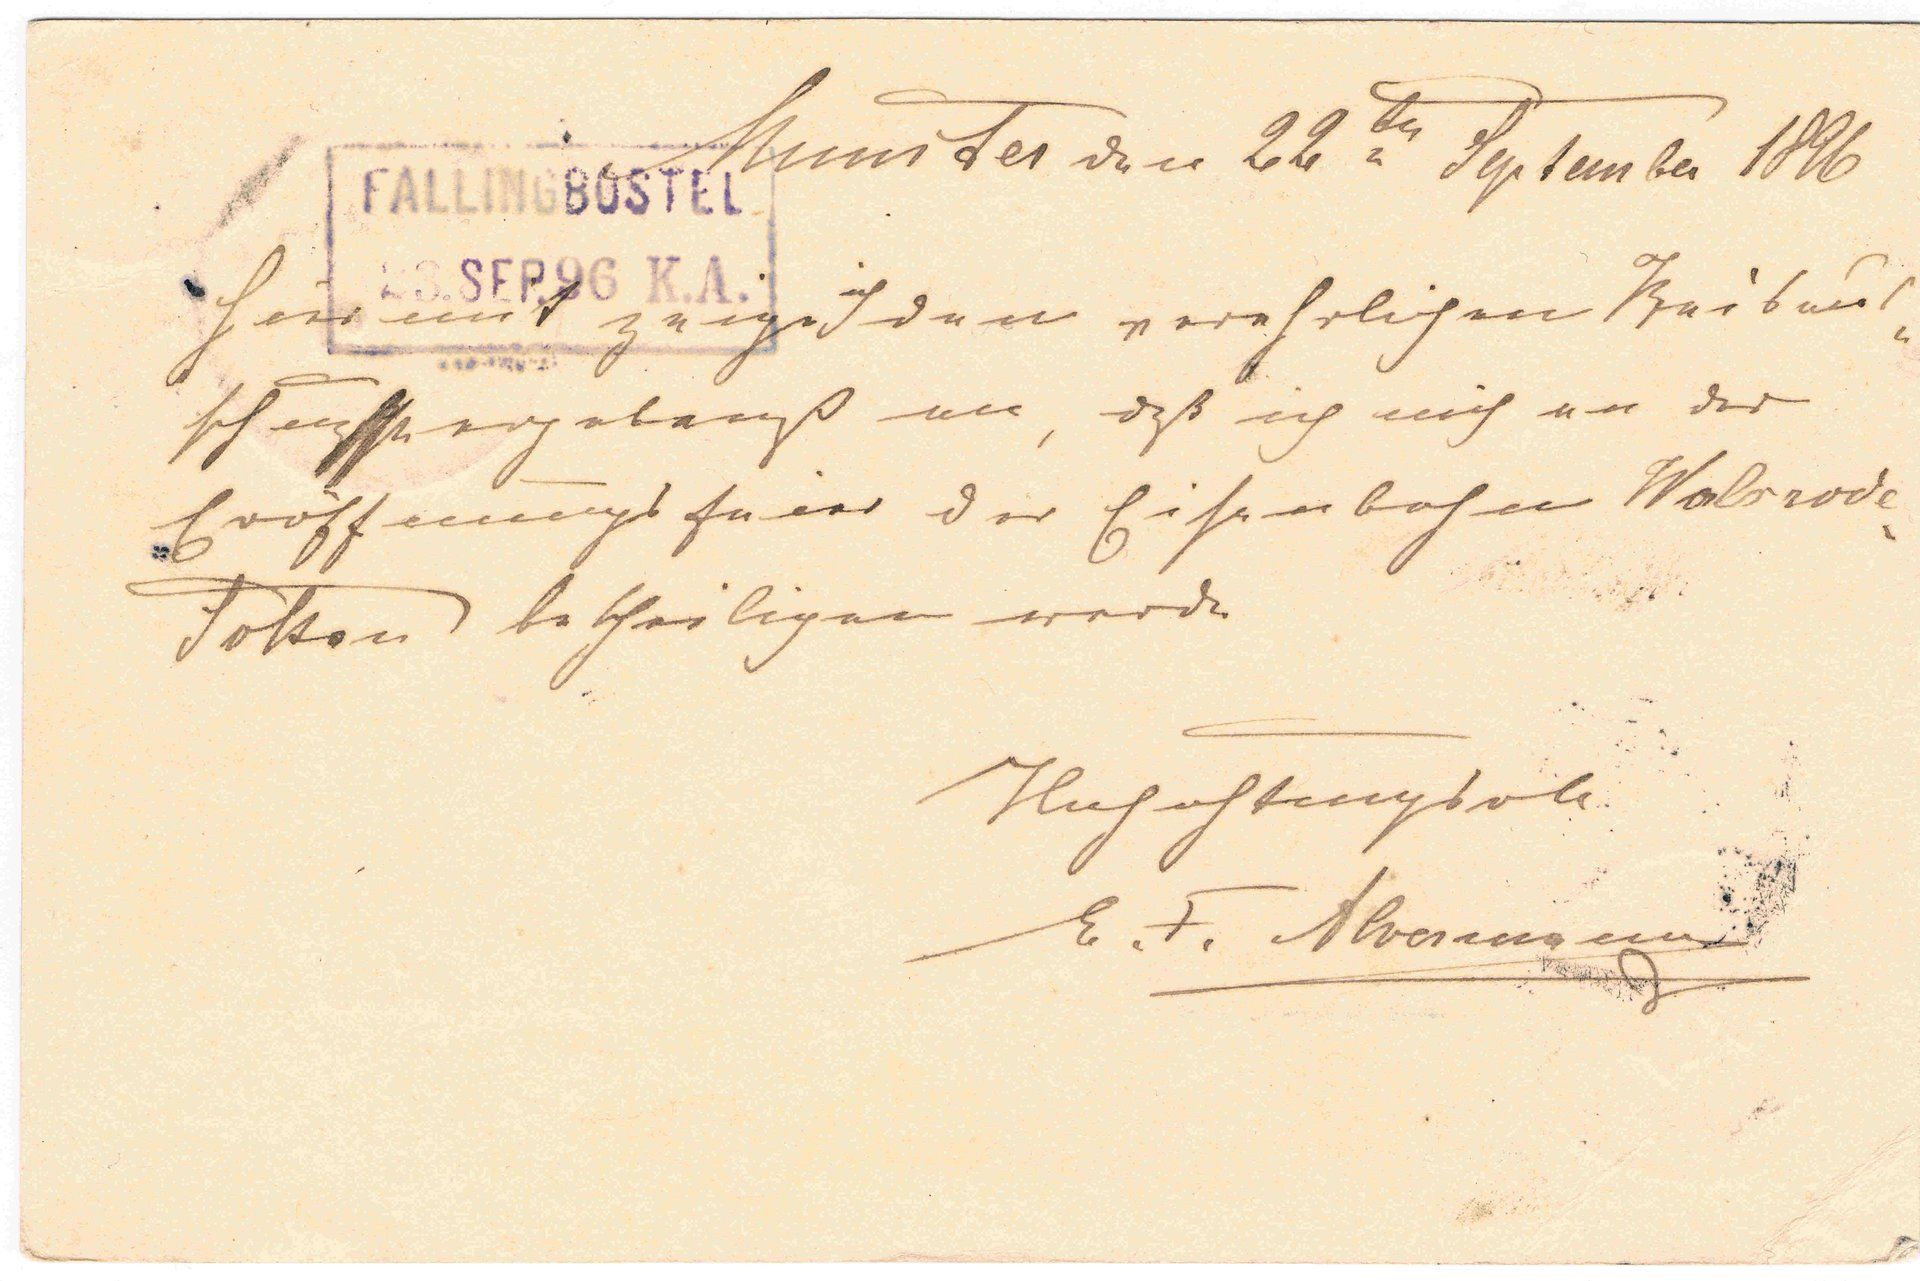 Munster den 22ten September 1896
FALLINGBOSTEL
23.SEP.96 K.A.
Hiermit zeige ich den verehrlichen Kreisaus-
schuß ergebenst an, daß ich mich an der
Eröffnungsfeier der Eisenbahn Walsrode-
Soltau betheiligen werde
Hochachtungsvoll
E. F. Alvermann